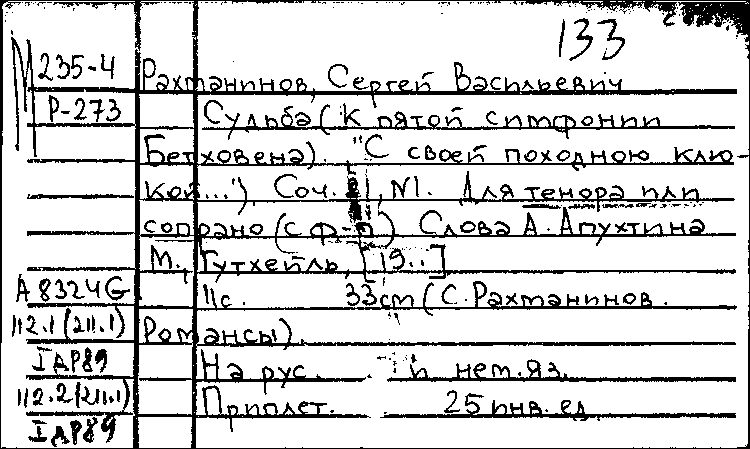 133
М 235-4
Р-273
Рахманинов, Сергей Васильевич
Судьба (К пятой симфонии
Бетховена). "С своей походною клю-
кой..."). Соч. 21, N1. Для тенора или
сопрано (с ф-п). Слова А. Апухтина
М., Гутхейль, [19..]
11с. 33см (С. Рахманинов.
Романсы).
На рус. и нем. яз.
Приплет. 25 инв. ед.
А 8324G
112.1 (211.1)
I АР89
112.2 (211.1)
I АР89